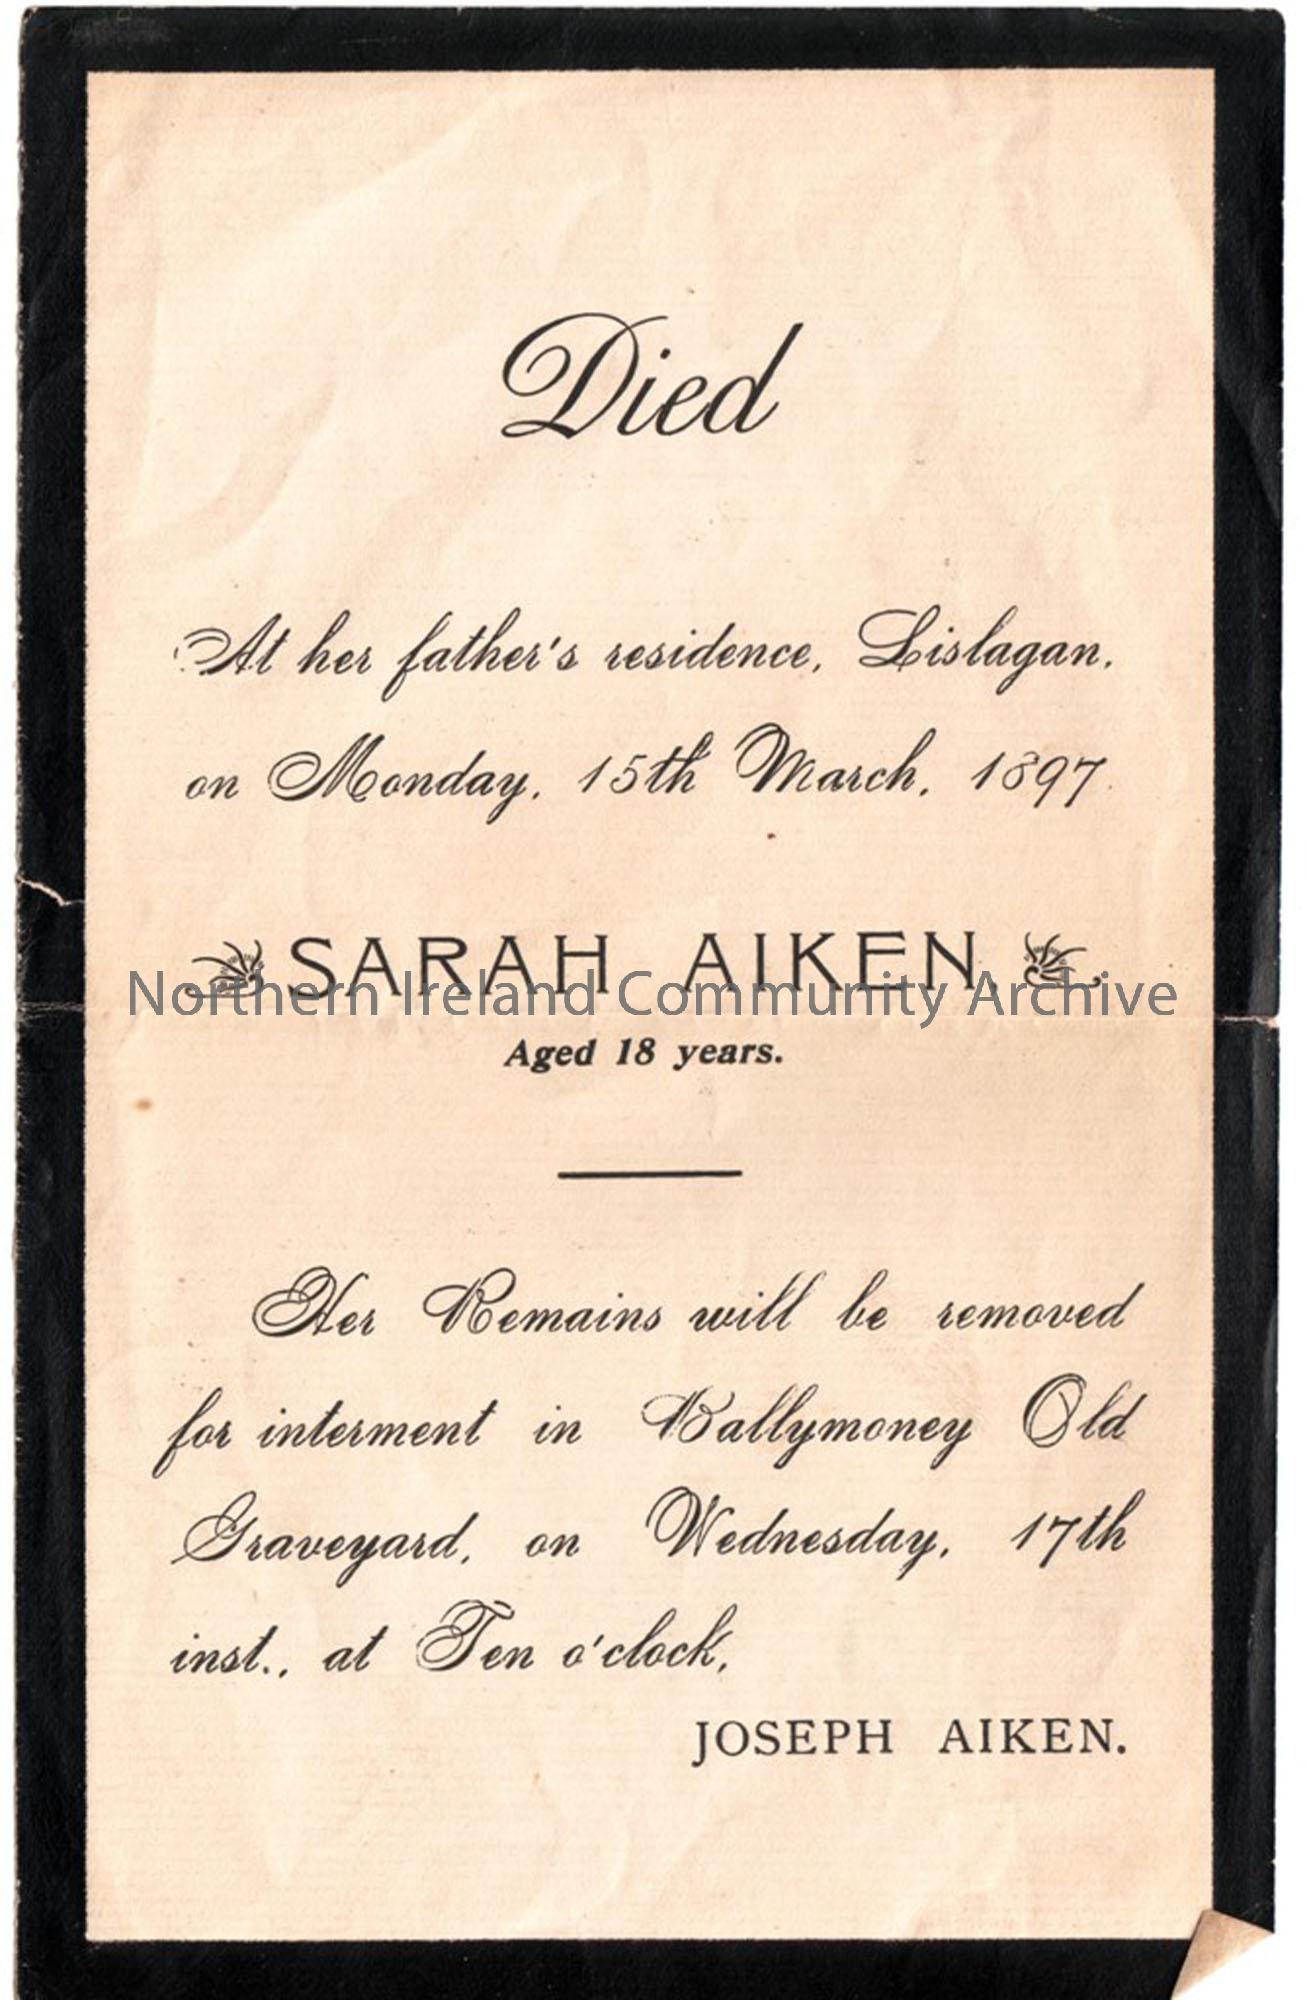 Died
At her father's residence, Lislagan,
on Monday, 15th March, 1897.
SARAH AIKEN,
Northern Ireland Community Archive
Aged 18 years.
Her Remains will be removed
for interment in Ballymoney Old
Graveyard, on Wednesday, 17th
inst., at Ten o'clock,
JOSEPH AIKEN.